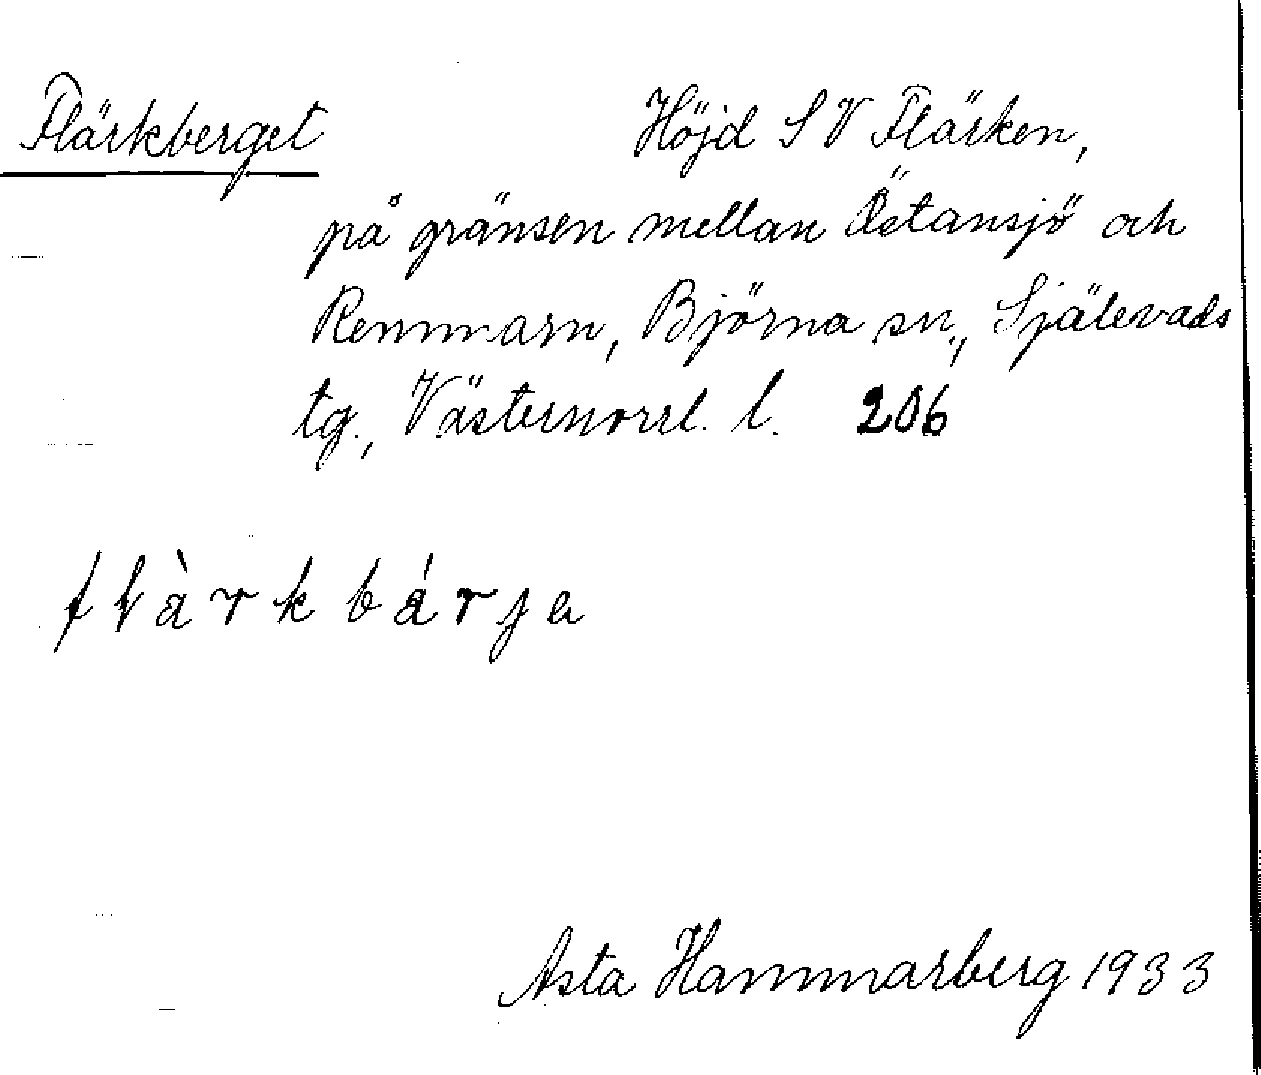 Flärkberget Höjd S V Flärken,
på gränsen mellan Östansjö och
Remmarn, Björna sn., Själevads
tg., Västernorrl. l. 206
flàrkbárja
Asta Hammarberg 1933